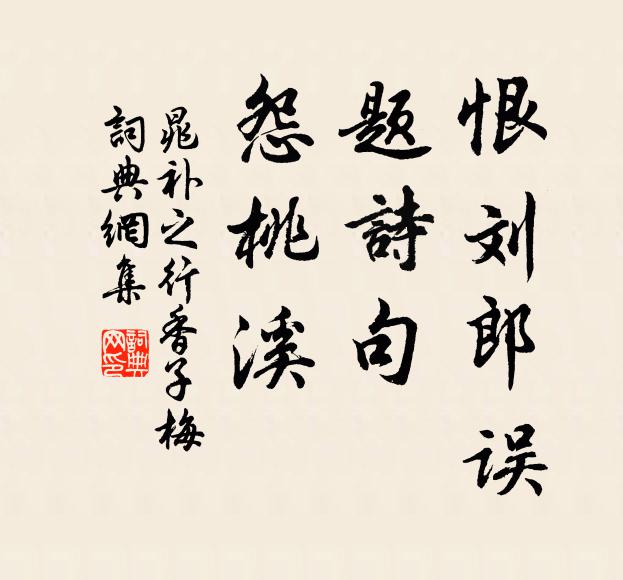 恨刘郎误
题詩句
怨桃溪
晁补之行香子梅
詞典網集
詞典
网印